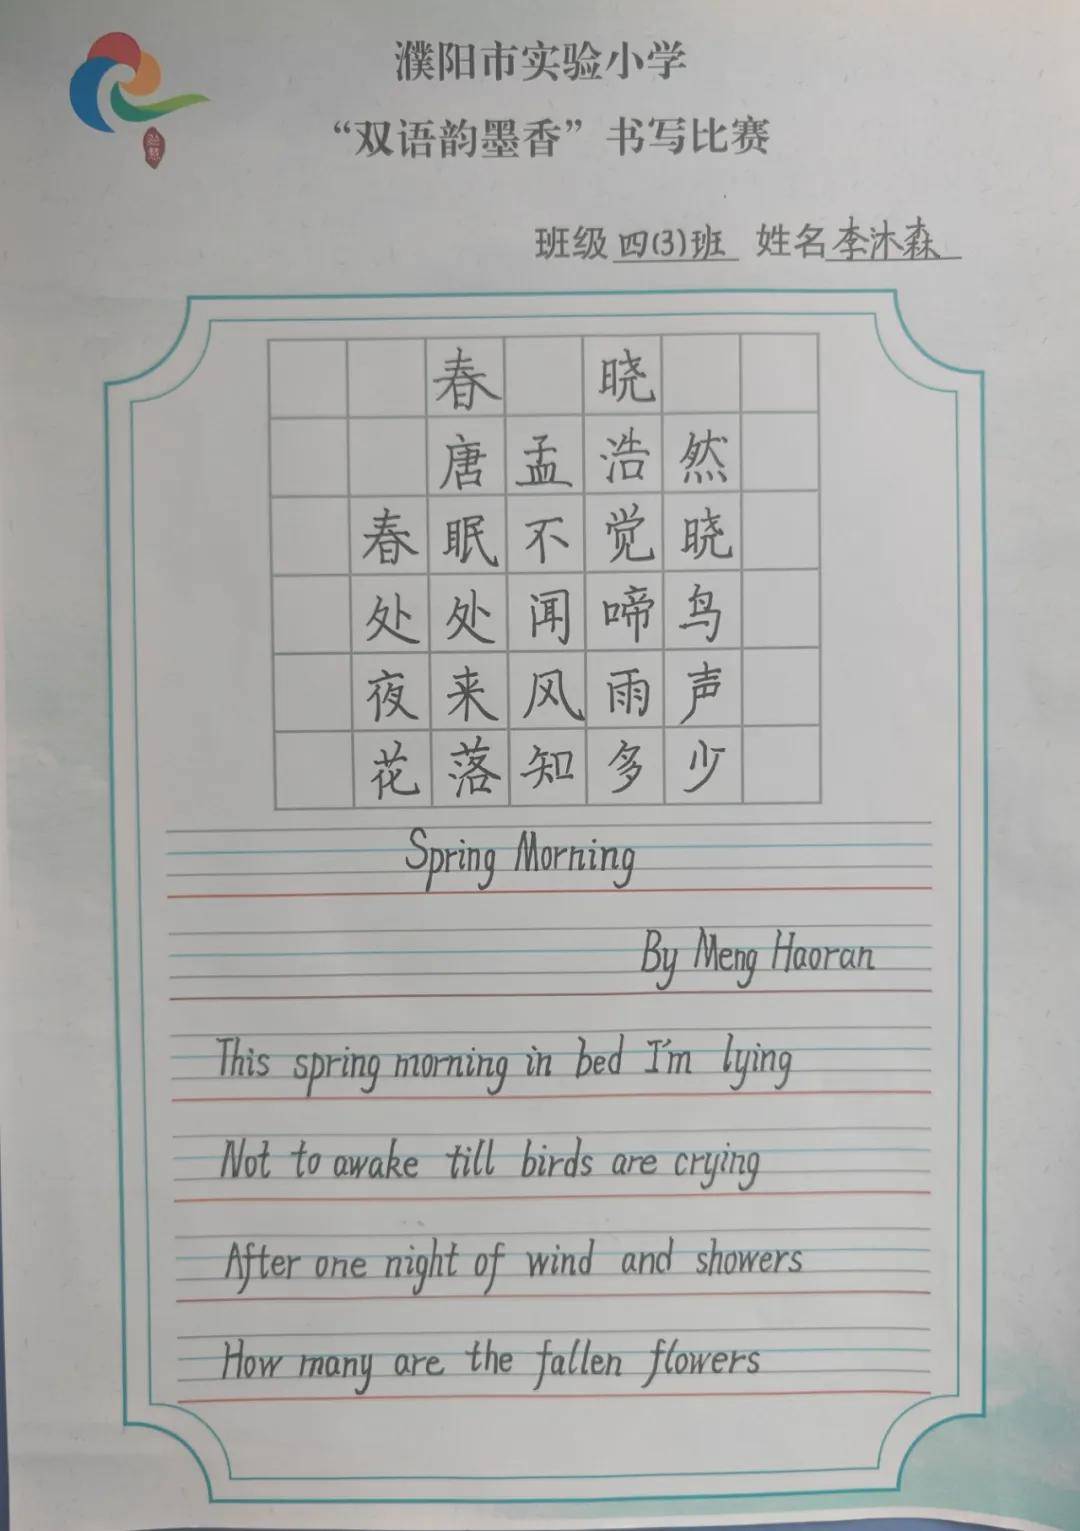 濮阳市实验小学
“双语韵墨香”书写比赛
班级 四(3)班 姓名 李沐森
春 晓
唐 孟 浩 然
春 眠 不 觉 晓
处 处 闻 啼 鸟
夜 来 风 雨 声
花 落 知 多 少
Spring Morning
By Meng Haoran
This spring morning in bed I'm lying
Not to awake till birds are crying
After one night of wind and showers
How many are the fallen flowers